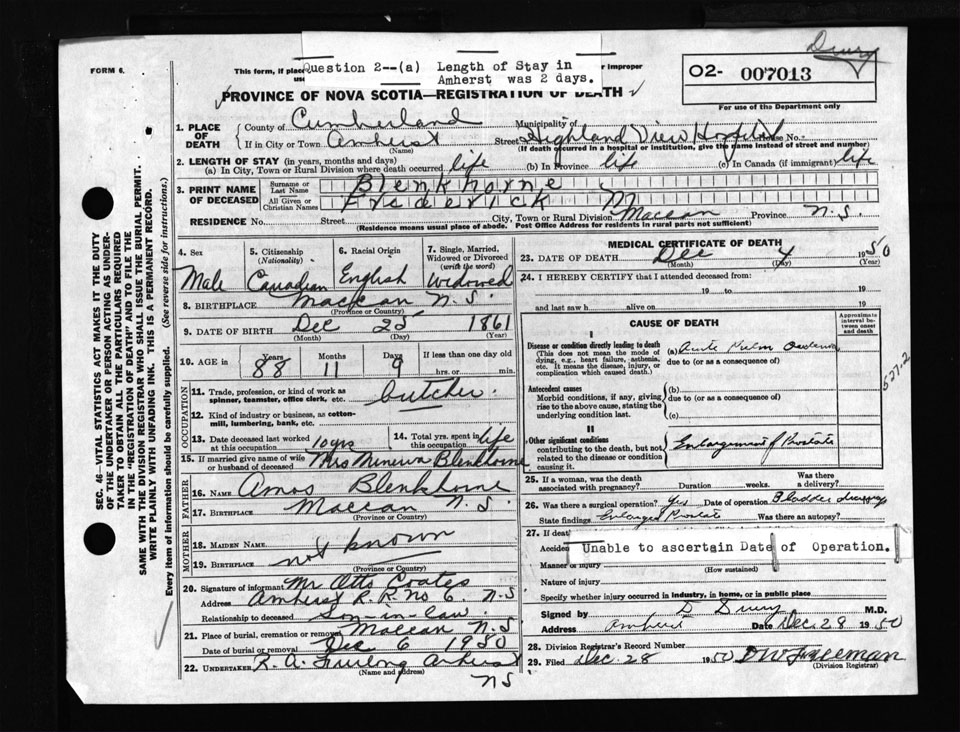 Drury
FORM 6.
This form, if place
Question 2--(a) Length of Stay in
Amherst was 2 days.
or improper
O2- 007013
For use of the Department only
PROVINCE OF NOVA SCOTIA—REGISTRATION OF DEATH
SEC. 46—VITAL STATISTICS ACT MAKES IT THE DUTY
OF THE UNDERTAKER OR PERSON ACTING AS UNDER-
TAKER TO OBTAIN ALL THE PARTICULARS REQUIRED
IN THE "REGISTRATION OF DEATH" AND TO FILE THE
SAME WITH THE DIVISION REGISTRAR WHO SHALL ISSUE THE BURIAL PERMIT.
WRITE PLAINLY WITH UNFADING INK. THIS IS A PERMANENT RECORD.
Every item of information should be carefully supplied. (See reverse side for instructions.)
1. PLACE OF DEATH
County of Cumberland Municipality of
If in City or Town Amherst Street Highland View Hospital House No.
(Name) (If death occurred in a hospital or institution, give the name instead of street and number)
2. LENGTH OF STAY (in years, months and days)
(a) In City, Town or Rural Division where death occurred life (b) In Province life (c) In Canada (if immigrant) life
3. PRINT NAME OF DECEASED
Surname or Last Name Blenkhorne
All Given or Christian Names Frederick M
RESIDENCE No. Street City, Town or Rural Division Maccan Province N.S.
(Residence means usual place of abode. Post Office Address for residents in rural parts not sufficient)
4. Sex 5. Citizenship (Nationality) 6. Racial Origin 7. Single, Married, Widowed or Divorced (write the word)
Male Canadian English Widowed
8. BIRTHPLACE Maccan N.S.
(Province or Country)
9. DATE OF BIRTH Dec 25 1861
(Month) (Day) (Year)
10. AGE in Years Months Days If less than one day old
88 11 9 hrs. or min.
OCCUPATION
11. Trade, profession, or kind of work as spinner, teamster, office clerk, etc. butcher
12. Kind of industry or business, as cotton-mill, lumbering, bank, etc.
13. Date deceased last worked at this occupation 10 yrs 14. Total yrs. spent in this occupation life
15. If married give name of wife or husband of deceased Mrs Minerva Blenkhorne
FATHER
16. NAME Amos Blenkhorne
17. BIRTHPLACE Maccan N.S.
(Province or Country)
MOTHER
18. MAIDEN NAME
19. BIRTHPLACE not known
(Province or Country)
20. Signature of informant Mr Otto Coates
Address Amherst R.R. No 6. N.S
Relationship to deceased Son-in-law.
21. Place of burial, cremation or removal Maccan N.S.
Date of burial or removal Dec 6 1950
22. UNDERTAKER R. A. Amherst
(Name and address)
N S
MEDICAL CERTIFICATE OF DEATH
23. DATE OF DEATH Dec 4 1950
(Month) (Day) (Year)
24. I HEREBY CERTIFY that I attended deceased from:
19 to 19
and last saw h alive on 19
CAUSE OF DEATH
Approximate interval between onset and death
I
Disease or condition directly leading to death
(This does not mean the mode of dying, e.g., heart failure, asthenia, etc. It means the disease, injury, or complication which caused death.)
(a) Acute Pulm Oedema
due to (or as a consequence of)
527.2
Antecedent causes
Morbid conditions, if any, giving rise to the above cause, stating the underlying condition last.
(b)
due to (or as a consequence of)
(c)
II
Other significant conditions
contributing to the death, but not related to the disease or condition causing it.
Enlargement of Prostate
25. If a woman, was the death associated with pregnancy? Duration weeks. Was there a delivery?
26. Was there a surgical operation? Yes Date of operation Bladder drainage
State findings Enlarged Prostate Was there an autopsy?
27. If death
Accident
Unable to ascertain Date of Operation.
Manner of injury
(How sustained)
Nature of injury
Specify whether injury occurred in industry, in home, or in public place
Signed by D Drury M.D.
Address Amherst Date Dec. 28 1950
28. Division Registrar's Record Number
29. Filed Dec. 28 1950 D W Freeman
(Division Registrar)